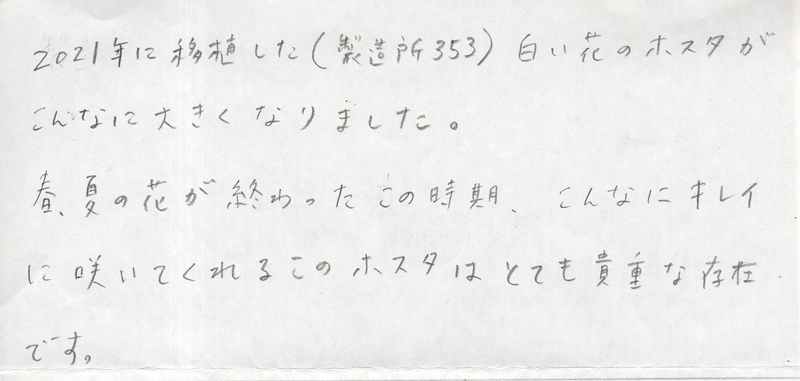 2021年に移植した(製造所353)白い花のホスタが
こんなに大きくなりました。
春、夏の花が終わったこの時期、こんなにキレイ
に咲いてくれるこのホスタはとても貴重な存在
です。